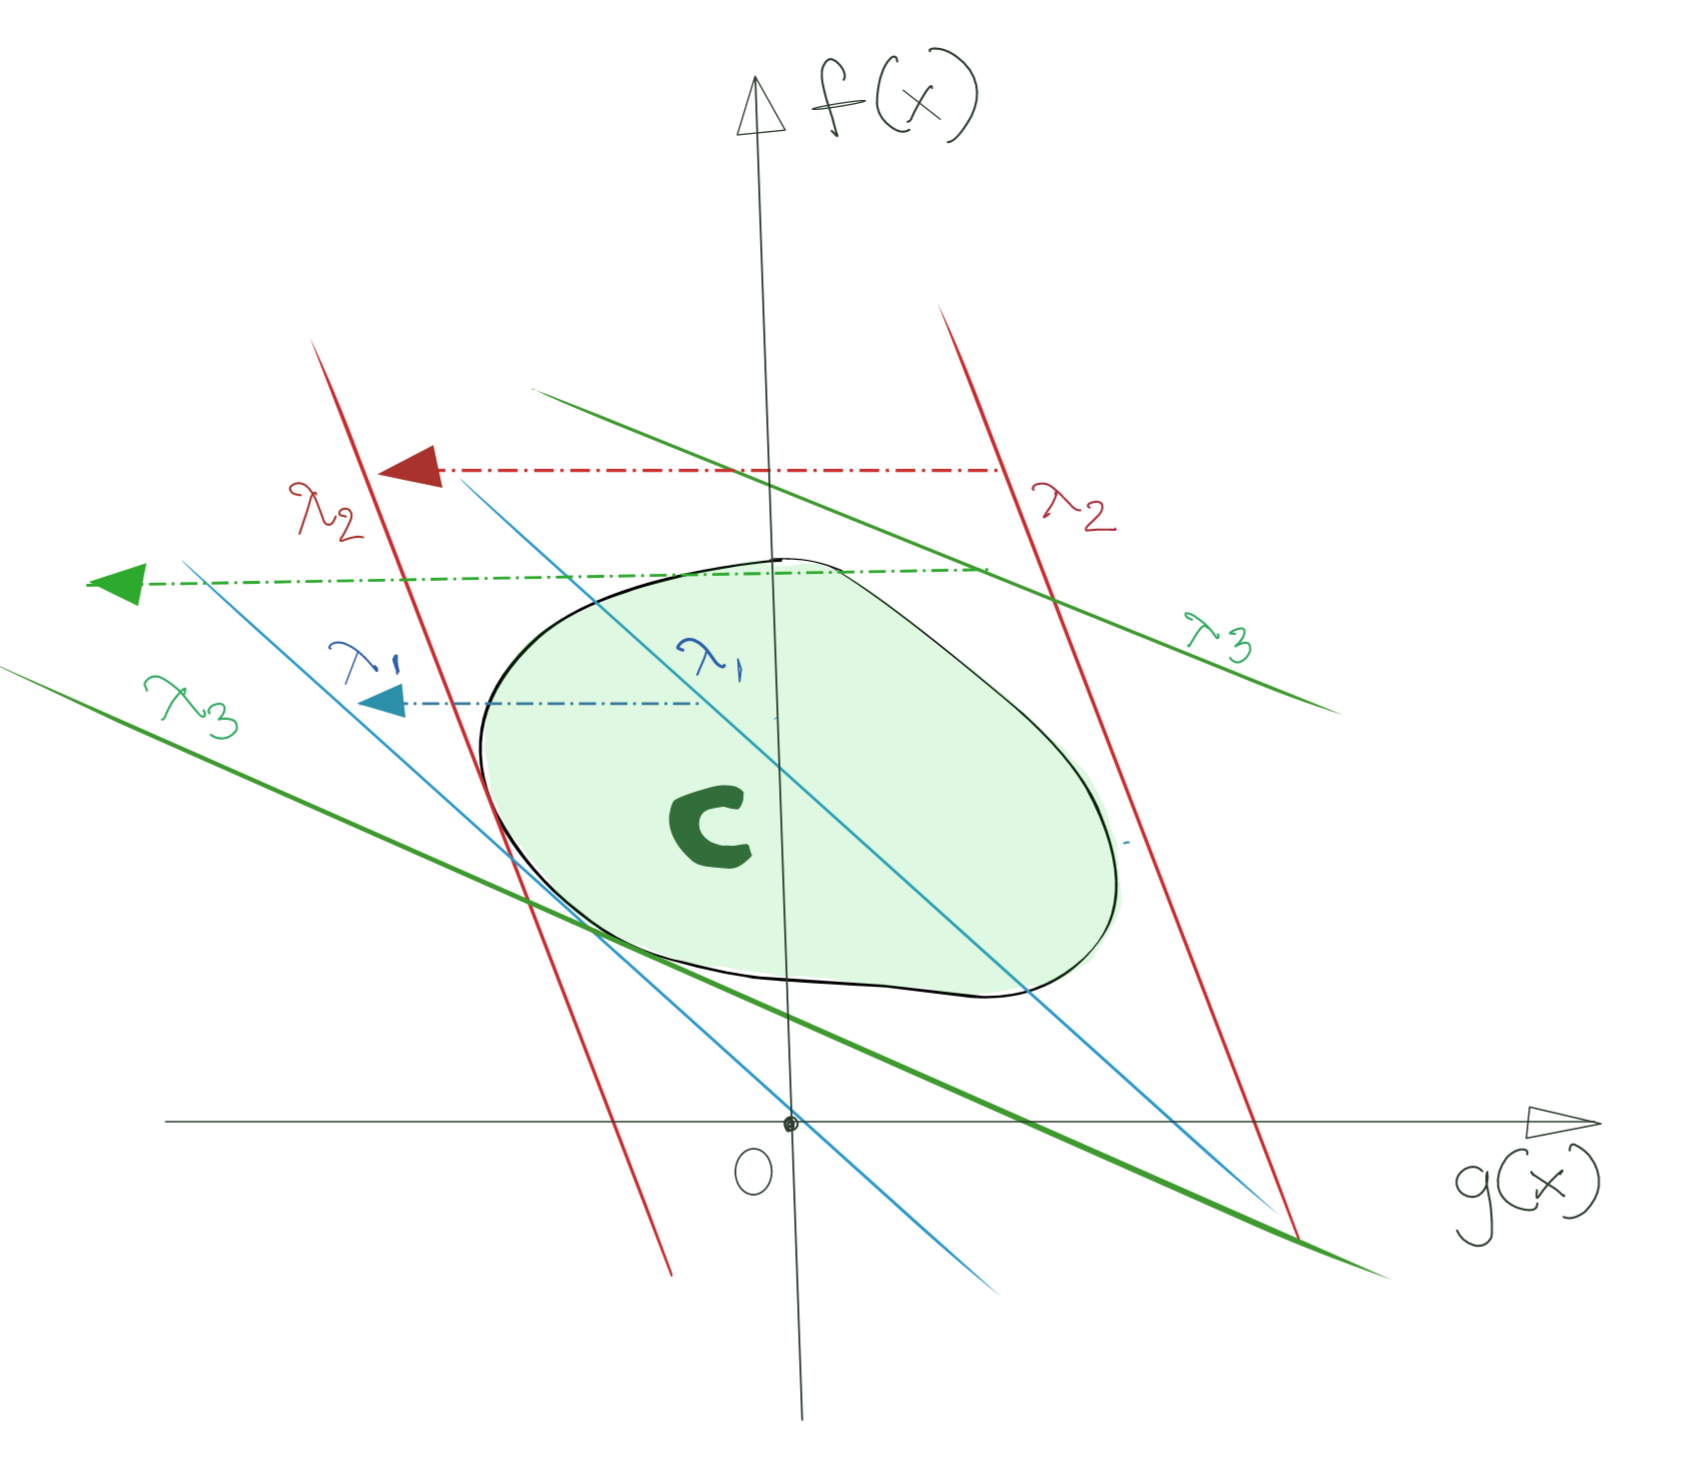 f(x)
λ2
λ2
λ3
λ1
λ1
λ3
C
O
g(x)